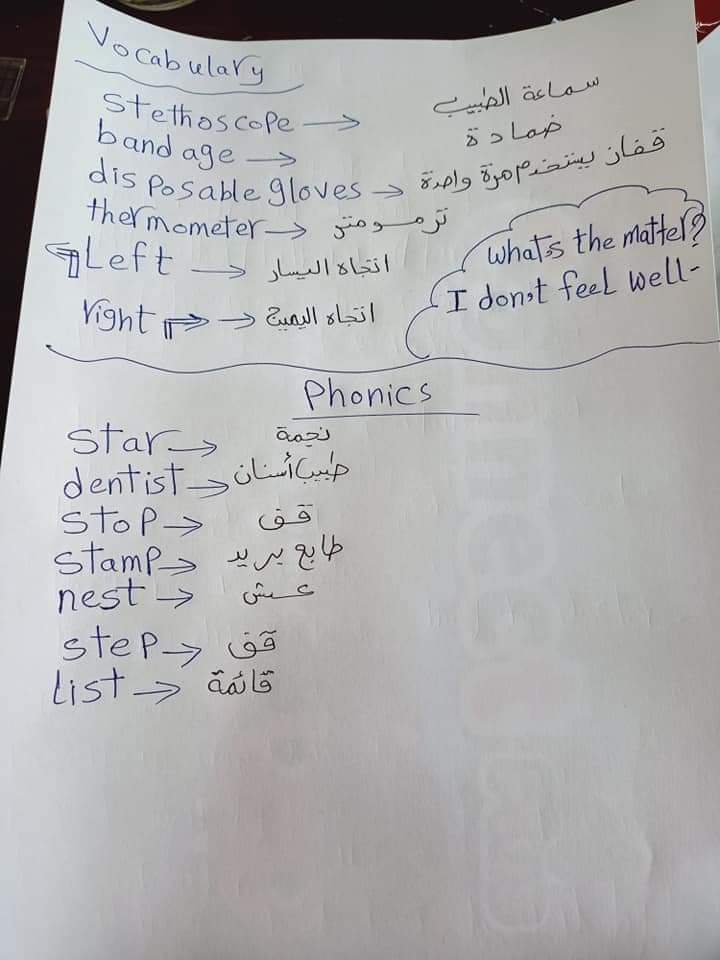 Vocabulary
stethoscope → سماعة الطبيب
bandage → ضمادة
disposable gloves → قفاز يستخدم مرة واحدة
thermometer → ترمومتر
Left → اتجاه اليسار
right → اتجاه اليمين
what,s the matter?
I don,t feel well-
Phonics
star → نجمة
dentist → طبيب أسنان
stop → قف
stamp → طابع بريد
nest → عش
step → قف
list → قائمة